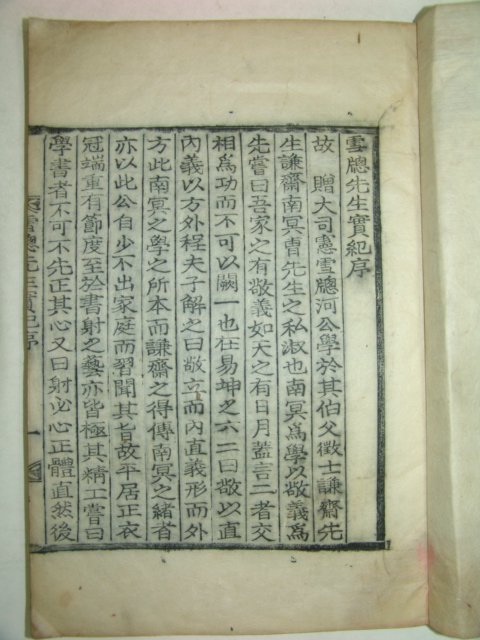 雪牕先生實紀序
故 贈大司憲雪牕河公學於其伯父徵士謙齋先
生謙齋南冥曺先生之私淑也南冥爲學以敬義爲
先嘗曰吾家之有敬義如天之有日月蓋言二者交
相爲功而不可以闕一也在易坤之六二曰敬以直
內義以方外程夫子解之曰敬立而內直義形而外
方此南冥之學之所本而謙齋之得傳南冥之緖者
亦以此公自少不出家庭而習聞其旨故平居正衣
冠端重有節度至於書射之藝亦皆極其精工嘗曰
學書者不可不先正其心又曰射必心正體直然後
雪牕先生實紀序 一